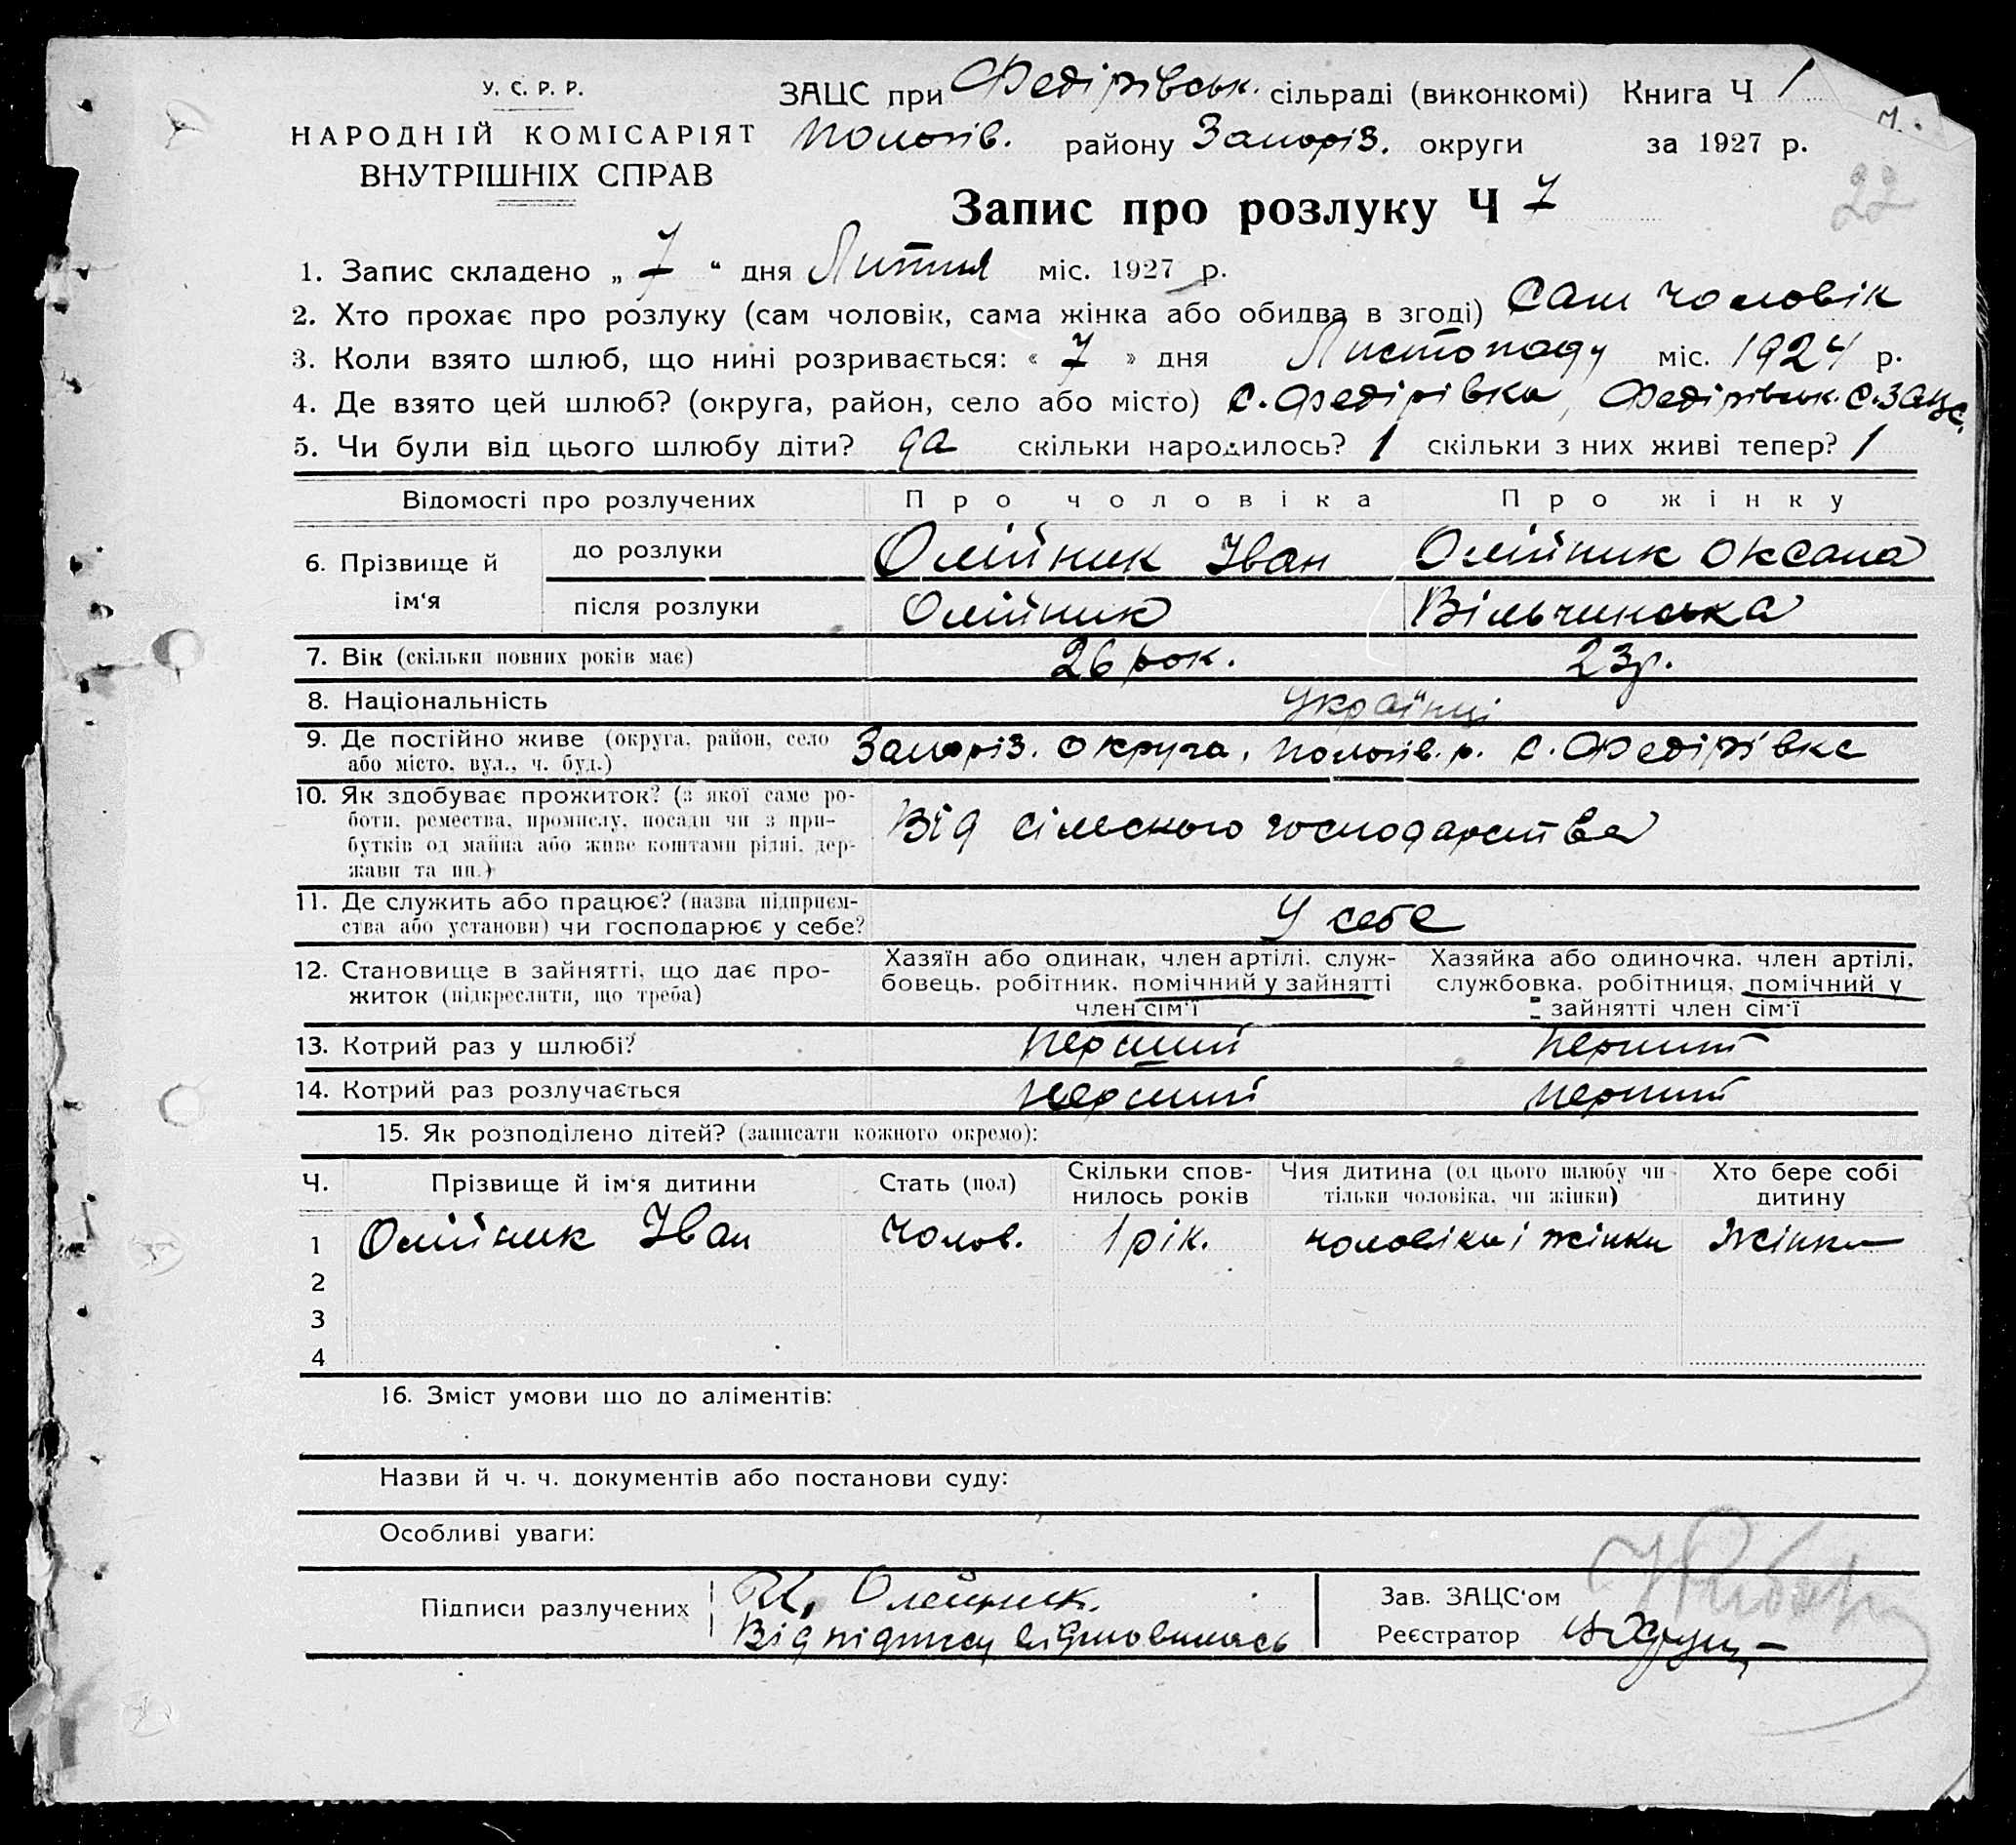 У. С. Р. Р.
НАРОДНІЙ КОМІСАРІЯТ
ВНУТРІШНІХ СПРАВ
ЗАЦС при Федірівськ. сільраді (виконкомі) Книга Ч 1
Пологів. району Запоріз. округи за 1927 р.
22
Запис про розлуку Ч 7
1. Запис складено „ 7 “ дня Липня міс. 1927 р.
2. Хто прохає про розлуку (сам чоловік, сама жінка або обидва в згоді) Сам чоловік
3. Коли взято шлюб, що нині розривається: « 7 » дня Листопаду міс. 1924 р.
4. Де взято цей шлюб? (округа, район, село або місто) с. Федірівка, Федірівськ. с. Зацс.
5. Чи були від цього шлюбу діти? да скільки народилось? 1 скільки з них живі тепер? 1
Відомості про розлучених Про чоловіка Про жінку
6. Прізвище й ім‘я до розлуки Олійник Іван Олійник Оксана
після розлуки Олійник Вільчинська
7. Вік (скільки повних років має) 26 рок. 23 р.
8. Національність Українці
9. Де постійно живе (округа, район, село
або місто, вул., ч. буд.) Запоріз. округа, Пологів. р. с. Федірівка
10. Як здобуває прожиток? (з якої саме ро-
боти, ремества, промислу, посади чи з при-
бутків од майна або живе коштами рідні, дер-
жави та ин.) Від сільського господарства
11. Де служить або працює? (назва підприєм-
ства або установи) чи господарює у себе? У себе
12. Становище в зайнятті, що дає про-
житок (підкреслити, що треба)
Хазяїн або одинак, член артілі, служ-
бовець, робітник, помічний у зайнятті
член сім‘ї
Хазяйка або одиночка, член артілі,
службовка, робітниця, помічний у
зайнятті член сім‘ї
13. Котрий раз у шлюбі? Перший Перший
14. Котрий раз розлучається Перший Перший
15. Як розподілено дітей? (записати кожного окремо):
Ч. Прізвище й ім‘я дитини Стать (пол) Скільки спов-
нилось років Чия дитина (од цього шлюбу чи
тільки чоловіка, чи жінки) Хто бере собі
дитину
1 Олійник Іван чолов. 1 рік. чоловіка і жінки Жінка
2
3
4
16. Зміст умови що до аліментів:
Назви й ч. ч. документів або постанови суду:
Особливі уваги:
Підписи разлучених Олейник.
Від підпису відмовилась
Зав. ЗАЦС‘ом
Реєстратор